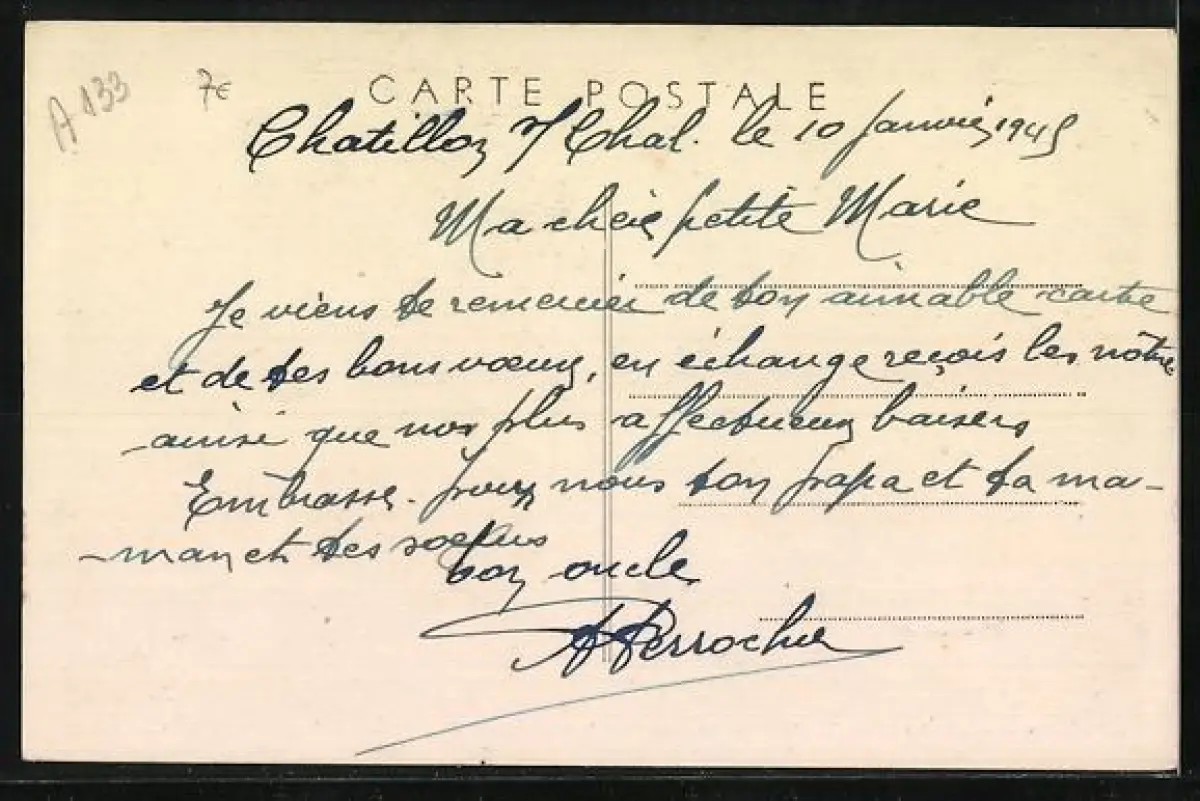 A 133
7€
CARTE POSTALE
Chatillon s/ Chal. le 10 Janvier 1945
Ma chère petite Marie
Je viens te remercier de ton aimable carte
et de tes bons vœux, en échange reçois les nôtres
ainsi que nos plus affectueux baisers
Embrasse-pour nous ton papa et ta ma-
-man et tes soeurs
ton oncle